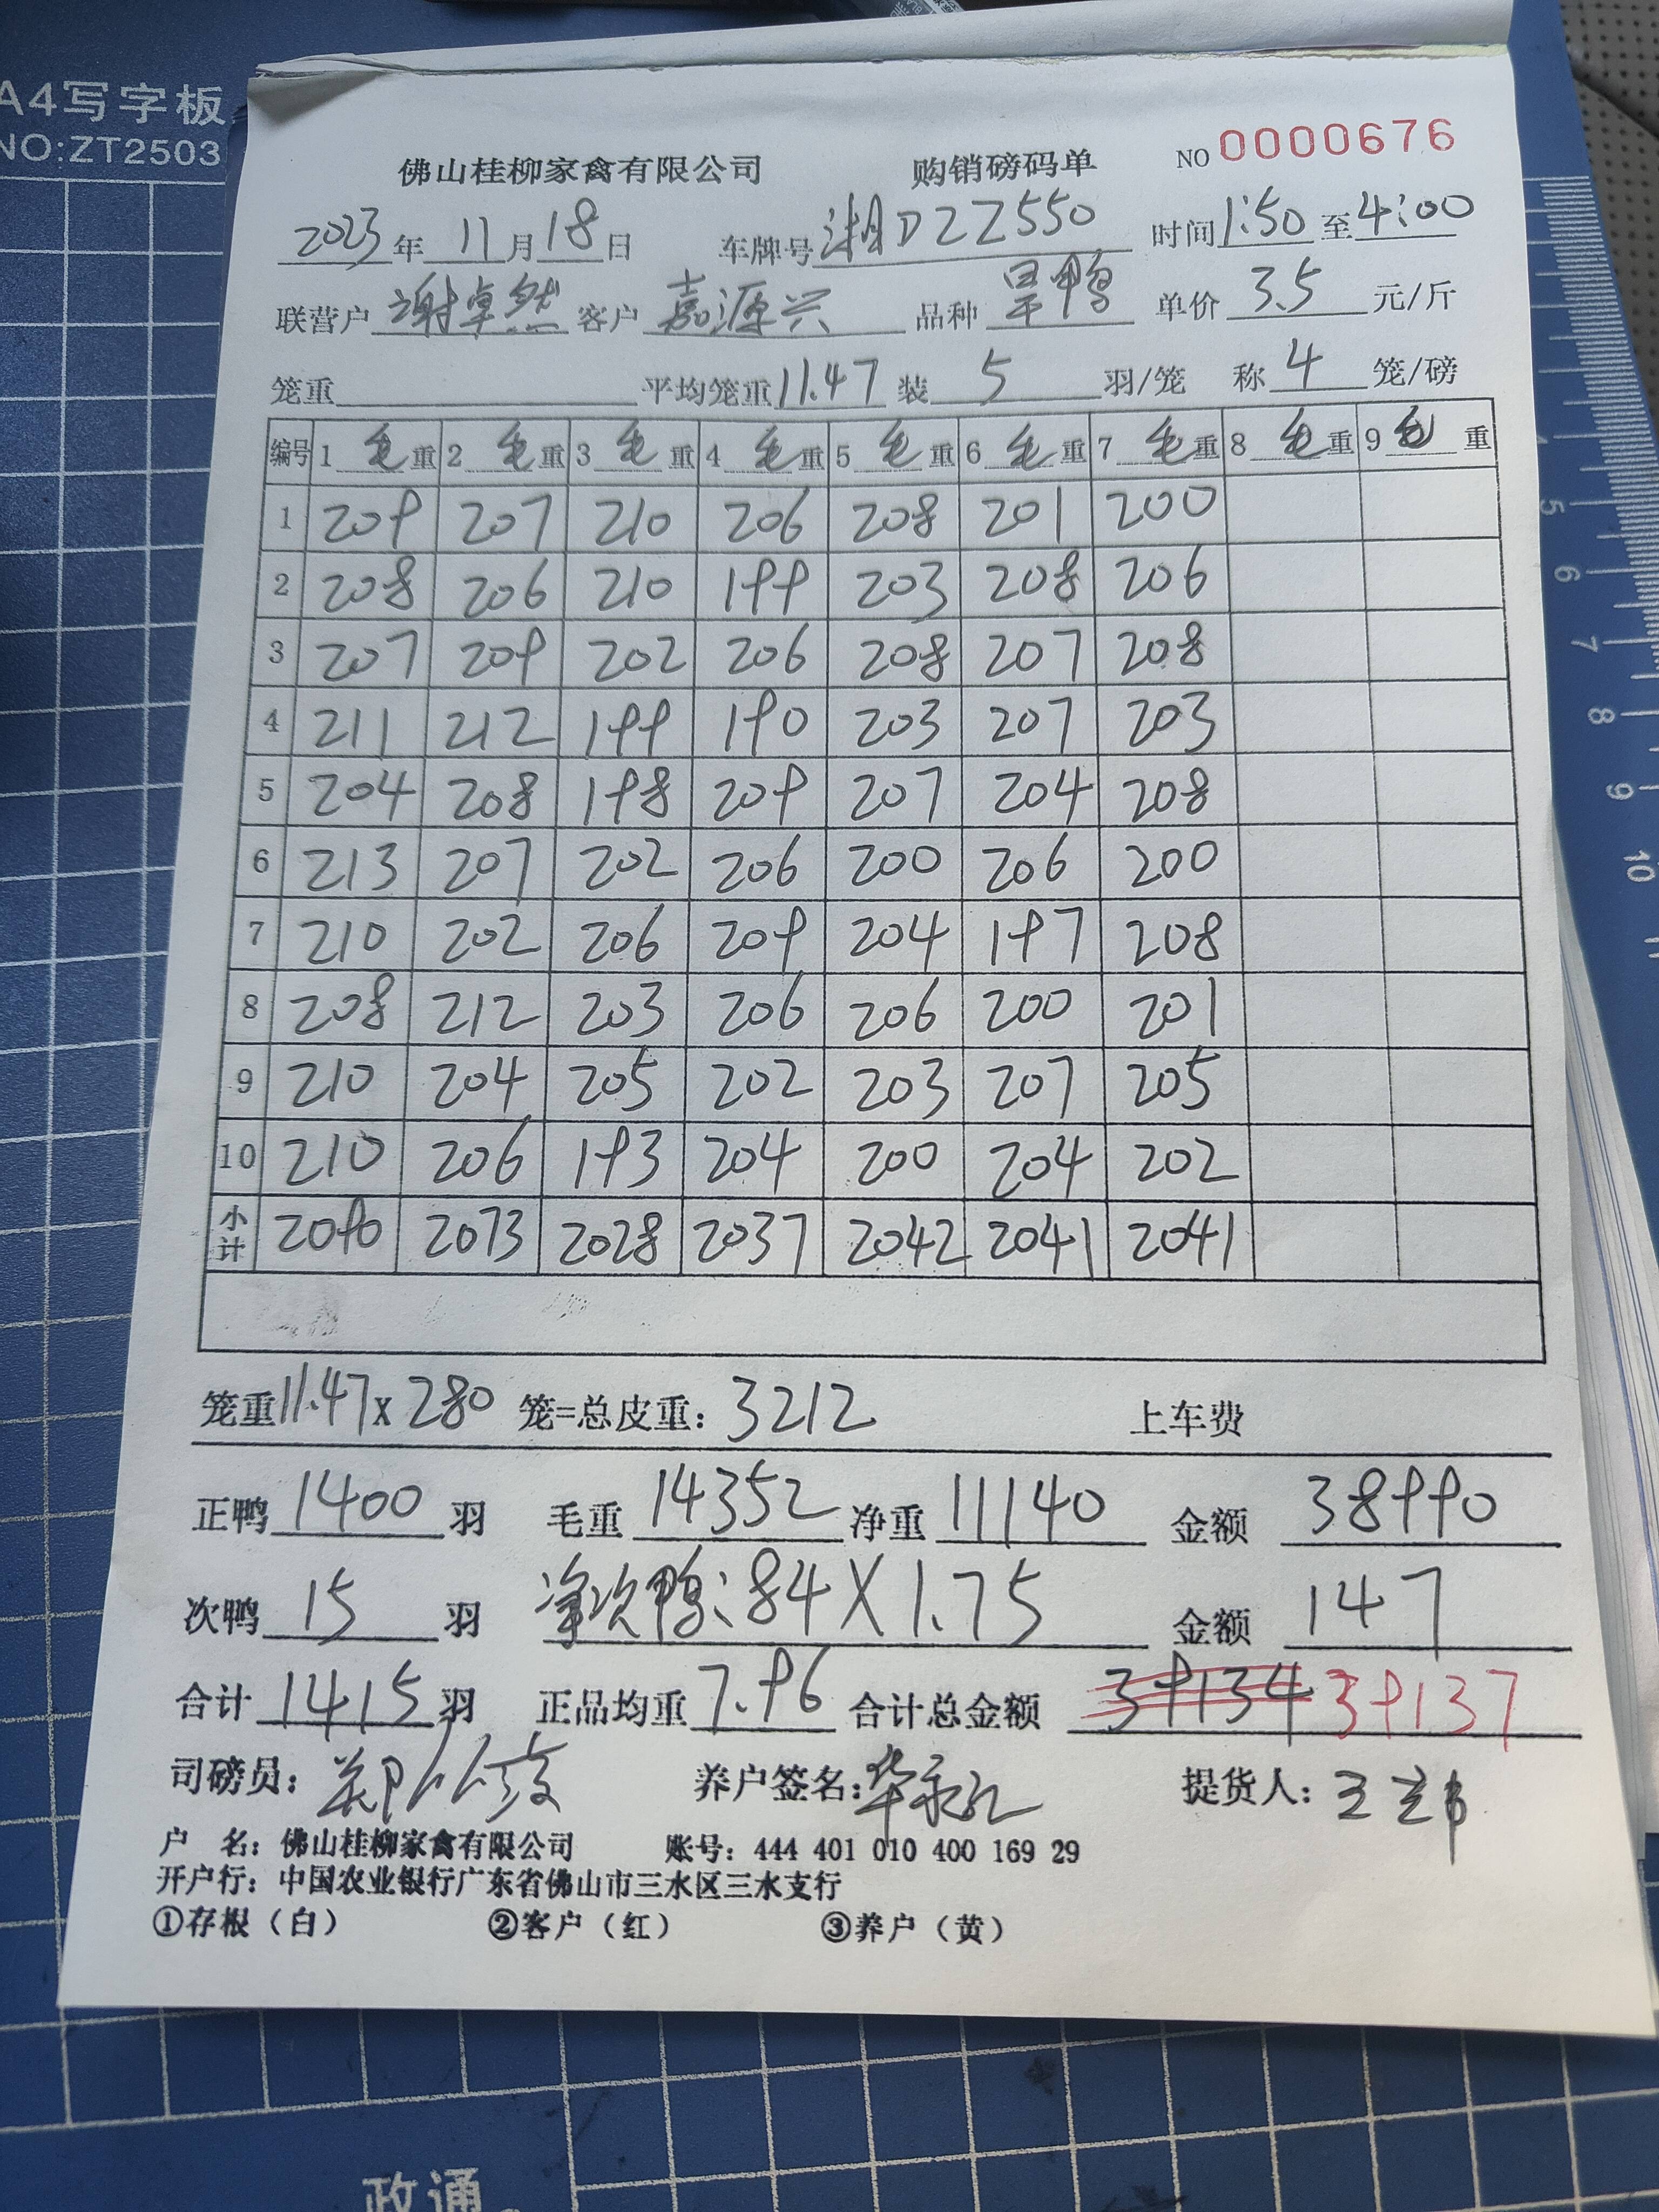 A4写字板
NO:ZT2503
佛山桂柳家禽有限公司 购销磅码单 NO 0000676
2023年 11月18日 车牌号 湘DZZ550 时间1:50至4:00
联营户 谢卓然 客户 嘉源兴 品种 旱鸭 单价 3.5 元/斤
笼重 平均笼重11.47 装 5 羽/笼 称 4 笼/磅
编号 1 毛重 2 毛重 3 毛重 4 毛重 5 毛重 6 毛重 7 毛重 8 毛重 9 毛重
1 209 207 210 206 208 201 200
2 208 206 210 199 203 208 206
3 207 209 202 206 208 207 208
4 211 212 199 190 203 207 203
5 204 208 198 209 207 204 208
6 213 207 202 206 200 206 200
7 210 202 206 209 204 197 208
8 208 212 203 206 206 200 201
9 210 204 205 202 203 207 205
10 210 206 193 204 200 204 202
小计 2090 2073 2028 2037 2042 2041 2041
笼重11.47x280 笼=总皮重: 3212 上车费
正鸭 1400 羽 毛重 14352 净重 11140 金额 38990
次鸭 15 羽 净次鸭:84X1.75 金额 147
合计 1415 羽 正品均重 7.96 合计总金额 39134 39137
司磅员: 养户签名: 提货人:
户 名: 佛山桂柳家禽有限公司 账号: 444 401 010 400 169 29
开户行: 中国农业银行广东省佛山市三水区三水支行
①存根（白） ②客户（红） ③养户（黄）
5
6
7
8
9
10
政通